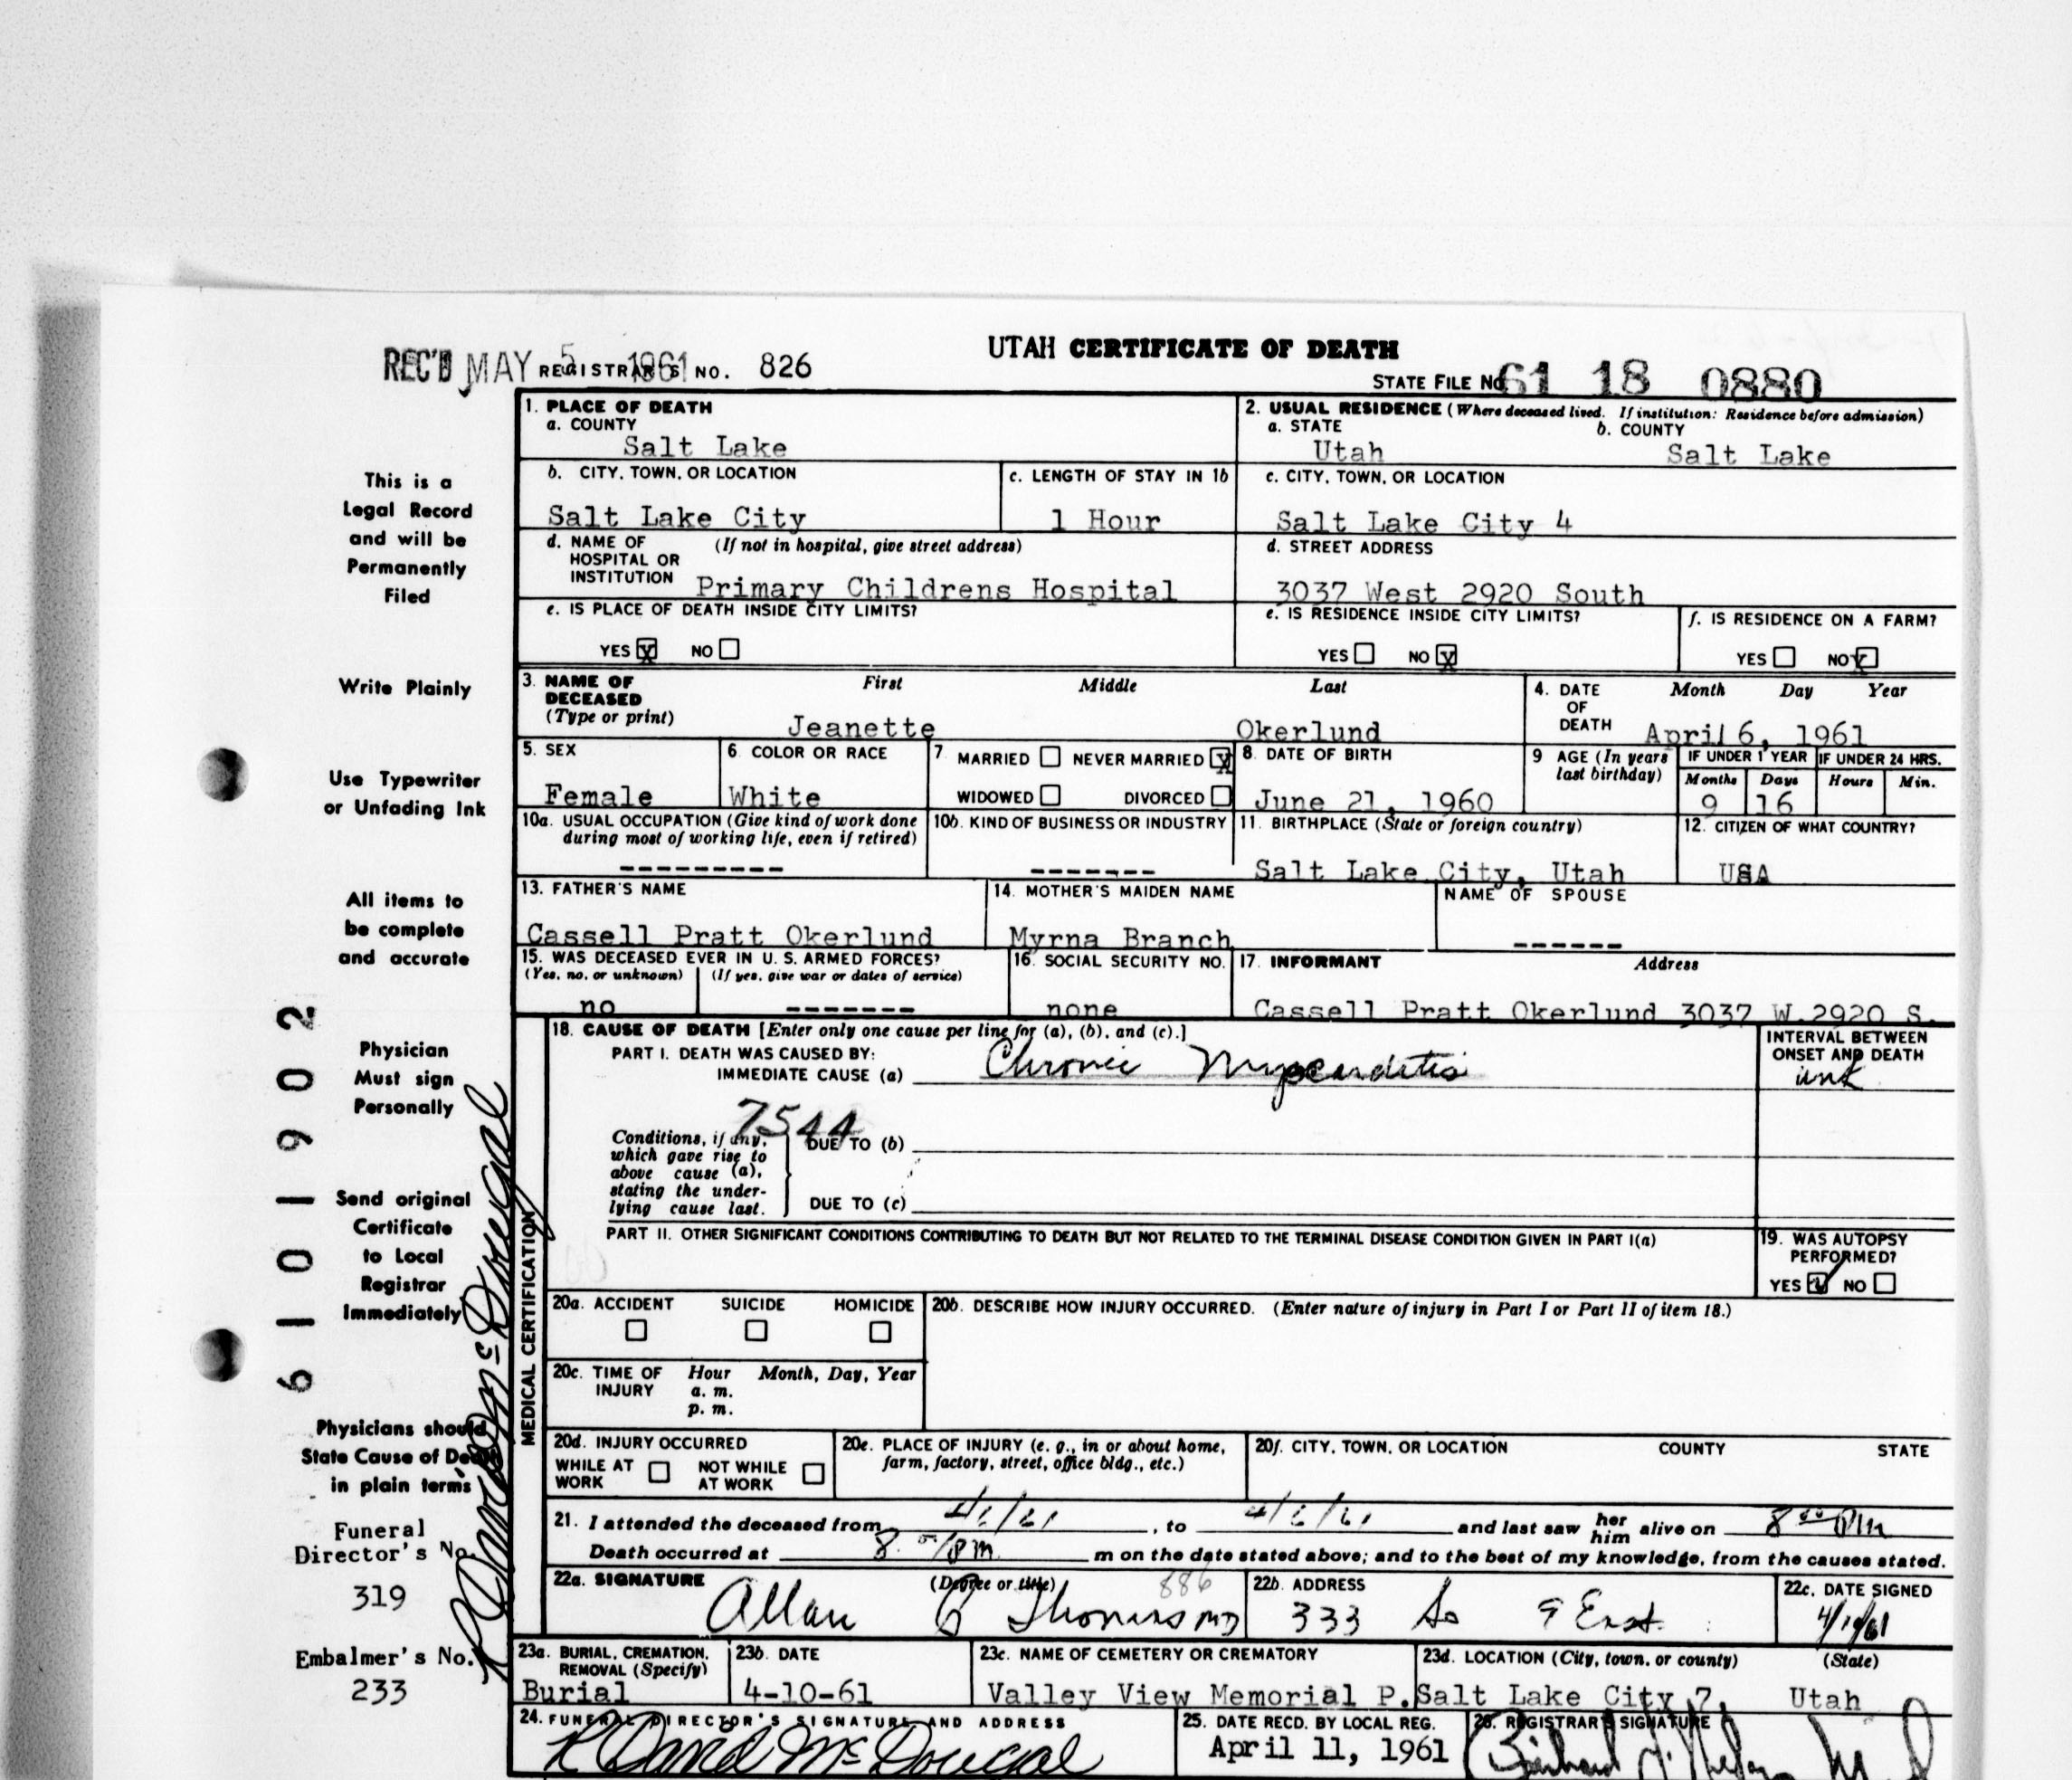 UTAH CERTIFICATE OF DEATH
REC'D MAY 5 1961 REGISTRAR'S NO. 826
STATE FILE NO. 61 18 0880
1. PLACE OF DEATH
a. COUNTY
Salt Lake
2. USUAL RESIDENCE (Where deceased lived. If institution: Residence before admission)
a. STATE b. COUNTY
Utah Salt Lake
b. CITY, TOWN, OR LOCATION
Salt Lake City
c. LENGTH OF STAY IN 1b
1 Hour
c. CITY, TOWN, OR LOCATION
Salt Lake City 4
d. NAME OF (If not in hospital, give street address)
HOSPITAL OR
INSTITUTION Primary Childrens Hospital
d. STREET ADDRESS
3037 West 2920 South
e. IS PLACE OF DEATH INSIDE CITY LIMITS?
YES X NO
e. IS RESIDENCE INSIDE CITY LIMITS?
YES NO X
f. IS RESIDENCE ON A FARM?
YES NO X
3. NAME OF First Middle Last
DECEASED
(Type or print) Jeanette Okerlund
4. DATE Month Day Year
OF
DEATH April 6, 1961
5. SEX
Female
6. COLOR OR RACE
White
7 MARRIED NEVER MARRIED X
WIDOWED DIVORCED
8. DATE OF BIRTH
June 21, 1960
9 AGE (In years
last birthday)
IF UNDER 1 YEAR IF UNDER 24 HRS.
Months Days Hours Min.
9 16
10a. USUAL OCCUPATION (Give kind of work done
during most of working life, even if retired)
---------
10b. KIND OF BUSINESS OR INDUSTRY
-------
11. BIRTHPLACE (State or foreign country)
Salt Lake City, Utah
12. CITIZEN OF WHAT COUNTRY?
USA
13. FATHER'S NAME
Cassell Pratt Okerlund
14. MOTHER'S MAIDEN NAME
Myrna Branch
NAME OF SPOUSE
------
15. WAS DECEASED EVER IN U. S. ARMED FORCES?
(Yes, no, or unknown) (If yes, give war or dates of service)
no -------
16. SOCIAL SECURITY NO.
none
17. INFORMANT Address
Cassell Pratt Okerlund 3037 W.2920 S.
18. CAUSE OF DEATH [Enter only one cause per line for (a), (b), and (c).]
PART I. DEATH WAS CAUSED BY:
IMMEDIATE CAUSE (a) Chronic Myocarditis
INTERVAL BETWEEN
ONSET AND DEATH
unk
7544
Conditions, if any,
which gave rise to
above cause (a),
stating the under-
lying cause last.
DUE TO (b)
DUE TO (c)
PART II. OTHER SIGNIFICANT CONDITIONS CONTRIBUTING TO DEATH BUT NOT RELATED TO THE TERMINAL DISEASE CONDITION GIVEN IN PART I(a)
19. WAS AUTOPSY
PERFORMED?
YES NO
20a. ACCIDENT SUICIDE HOMICIDE
20b. DESCRIBE HOW INJURY OCCURRED. (Enter nature of injury in Part I or Part II of item 18.)
20c. TIME OF Hour Month, Day, Year
INJURY a. m.
p. m.
20d. INJURY OCCURRED
WHILE AT NOT WHILE
WORK AT WORK
20e. PLACE OF INJURY (e. g., in or about home,
farm, factory, street, office bldg., etc.)
20f. CITY, TOWN, OR LOCATION COUNTY STATE
21. I attended the deceased from 4/6/61, to 4/6/61 and last saw her him alive on 8 00 PM
Death occurred at 8 PM m on the date stated above; and to the best of my knowledge, from the causes stated.
22a. SIGNATURE (Degree or title) 886
Allan B Thomas MD
22b. ADDRESS
333 So 9 East
22c. DATE SIGNED
4/10/61
23a. BURIAL, CREMATION,
REMOVAL (Specify)
Burial
23b. DATE
4-10-61
23c. NAME OF CEMETERY OR CREMATORY
Valley View Memorial P.
23d. LOCATION (City, town, or county) (State)
Salt Lake City 7, Utah
24. FUNERAL DIRECTOR'S SIGNATURE AND ADDRESS
R David McDougal
25. DATE RECD. BY LOCAL REG.
April 11, 1961
26. REGISTRAR'S SIGNATURE
MEDICAL CERTIFICATION
This is a
Legal Record
and will be
Permanently
Filed
Write Plainly
Use Typewriter
or Unfading Ink
All items to
be complete
and accurate
Physician
Must sign
Personally
Send original
Certificate
to Local
Registrar
Immediately
Physicians should
State Cause of Death
in plain terms
Funeral
Director's No.
319
Embalmer's No.
233
6101902
R David McDougal